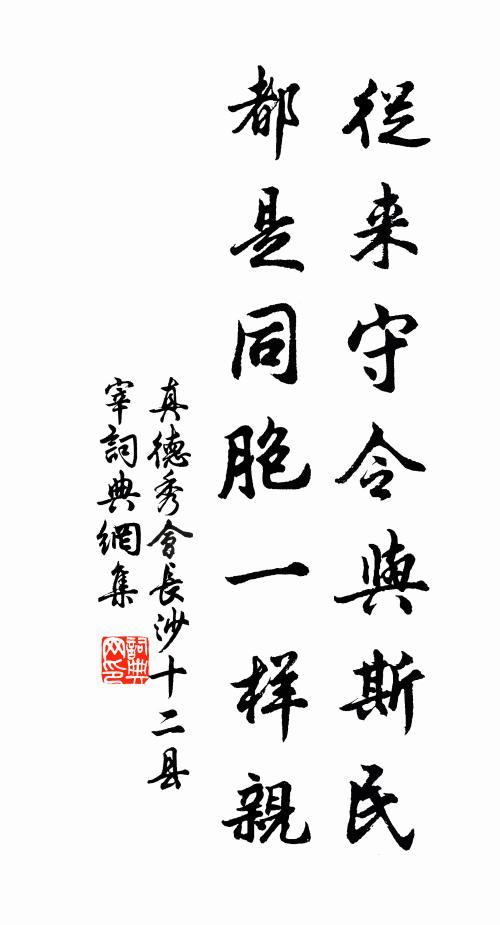 從来守令與斯民
都是同胞一样親
真德秀會長沙十二县
宰詞典網集
詞典
网印